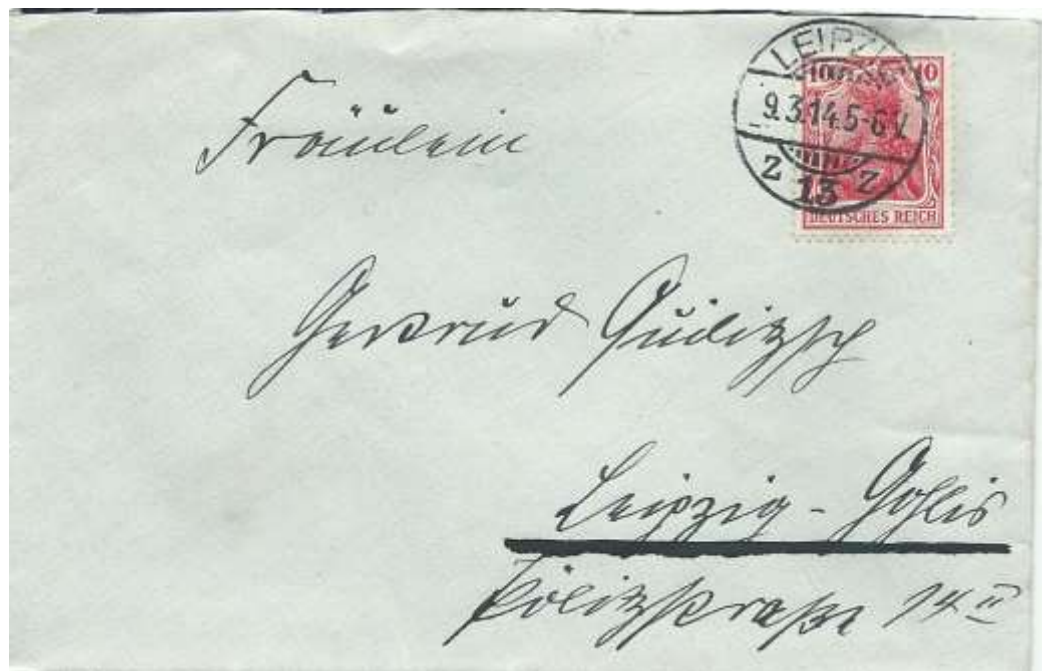 LEIPZIG
10 10
9.3.14.5-6 V.
Z 13 Z
DEUTSCHES REICH
Fräulein
Gertrud Quilitzsch
Leipzig - Gohlis
Pölitzstraße 14 II